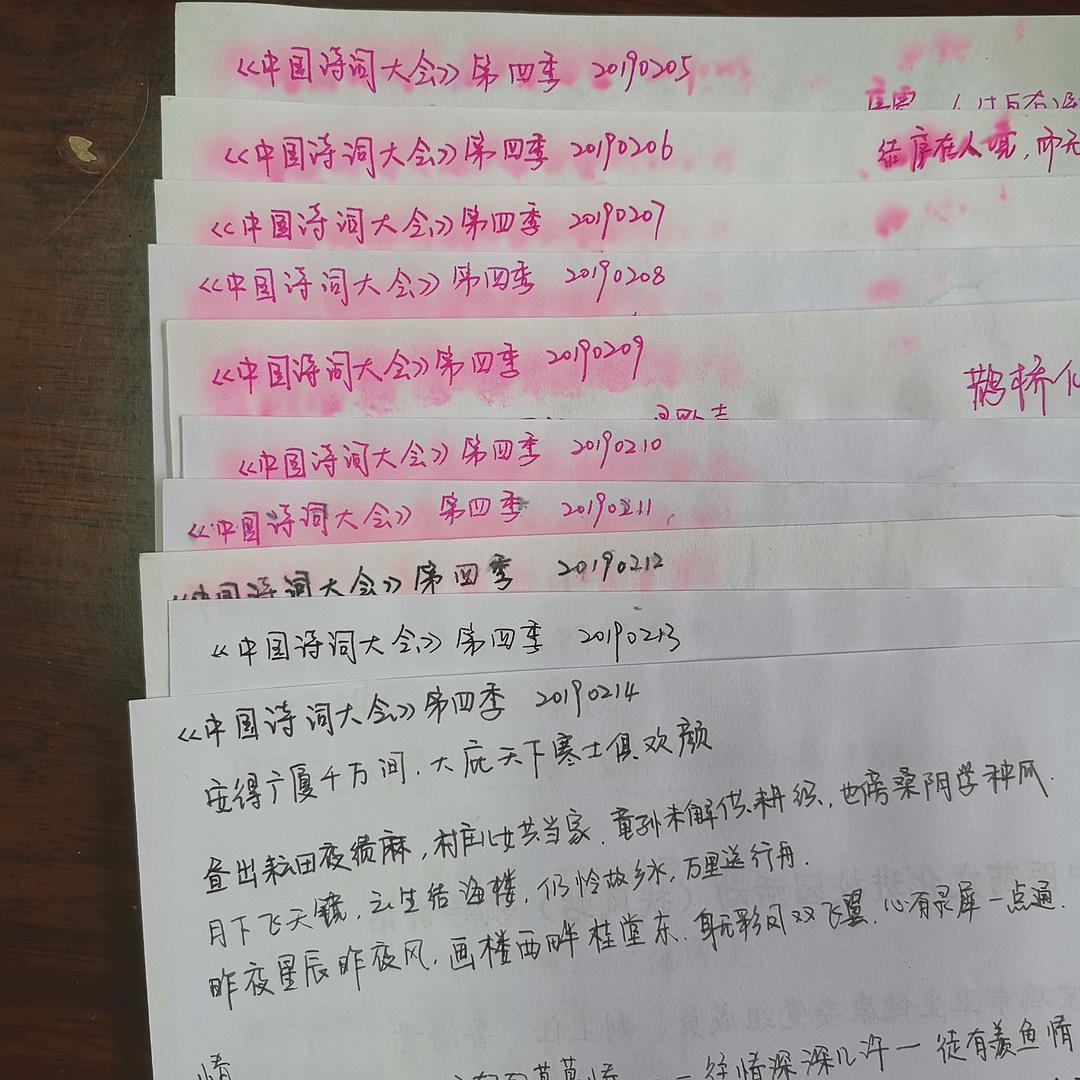 《中国诗词大会》第四季 20190205
《中国诗词大会》第四季 20190206
结庐在人境，而无
《中国诗词大会》第四季 20190207
《中国诗词大会》第四季 20190208
《中国诗词大会》第四季 20190209
鹊桥仙
《中国诗词大会》第四季 20190210
《中国诗词大会》第四季 20190211
《中国诗词大会》第四季 20190212
《中国诗词大会》第四季 20190213
《中国诗词大会》第四季 20190214
安得广厦千万间，大庇天下寒士俱欢颜
昼出耘田夜绩麻，村庄儿女共当家．童孙未解供耕织，也傍桑阴学种瓜．
月下飞天镜，云生结海楼，仍怜故乡水，万里送行舟．
昨夜星辰昨夜风，画楼西畔桂堂东．身无彩凤双飞翼，心有灵犀一点通．
情
一往情深深几许一 徒有羡鱼情